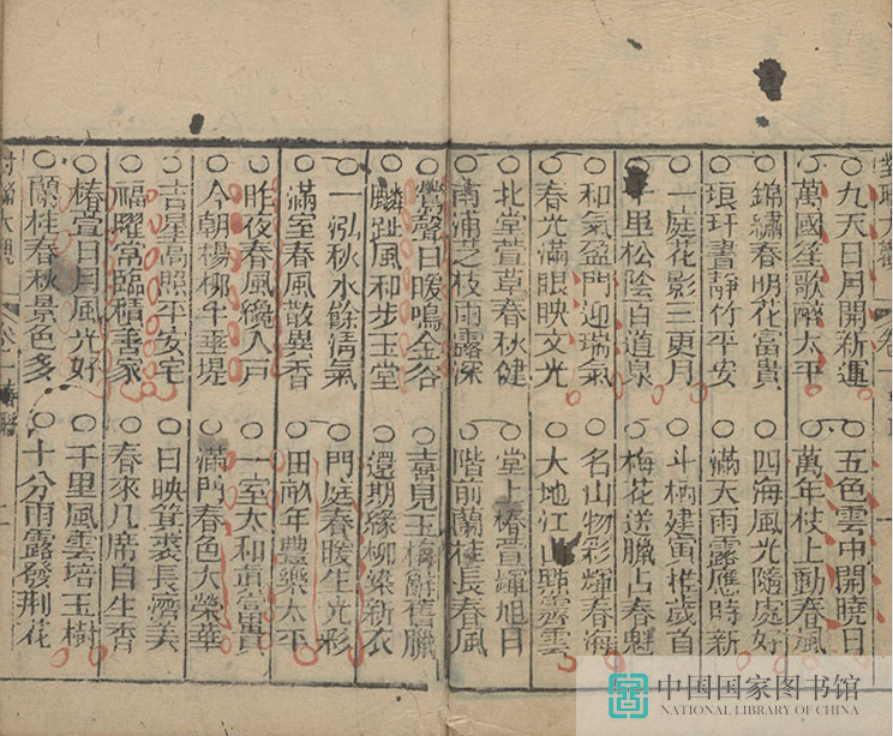 九天日月開新運 五色雲中開曉日
萬國笙歌醉太平 萬年枝上動春風
錦繡春明花富貴 四海風光隨處好
琅玕書靜竹平安 滿天雨露應時新
一庭花影三更月 斗柄建寅推歲首
千里松陰百道泉 梅花送臘占春魁
和氣盈門迎瑞氣 名山物彩輝春海
春光滿眼映文光 大地江山點霽雲
北堂萱草春秋健 堂上椿萱輝旭日
南浦芝枝雨露深 階前蘭桂長春風
鶯聲日暖鳴金谷 喜見玉梅辭舊臘
麟趾風和步玉堂 還期緣柳染新衣
一泓秋水餘清氣 門庭春暖生光彩
滿室春風散異香 田畝年豐樂太平
昨夜春風纔入戶 一室太和真富貴
今朝楊柳半垂堤 滿門春色大榮華
吉星高照平安宅 日映箕裘長濟美
福曜常臨積善家 春來几席自生香
椿萱日月風光好 千里風雲培玉樹
蘭桂春秋景色多 十分雨露發荆花
卷一 二
中国国家图书馆
NATIONAL LIBRARY OF CHINA